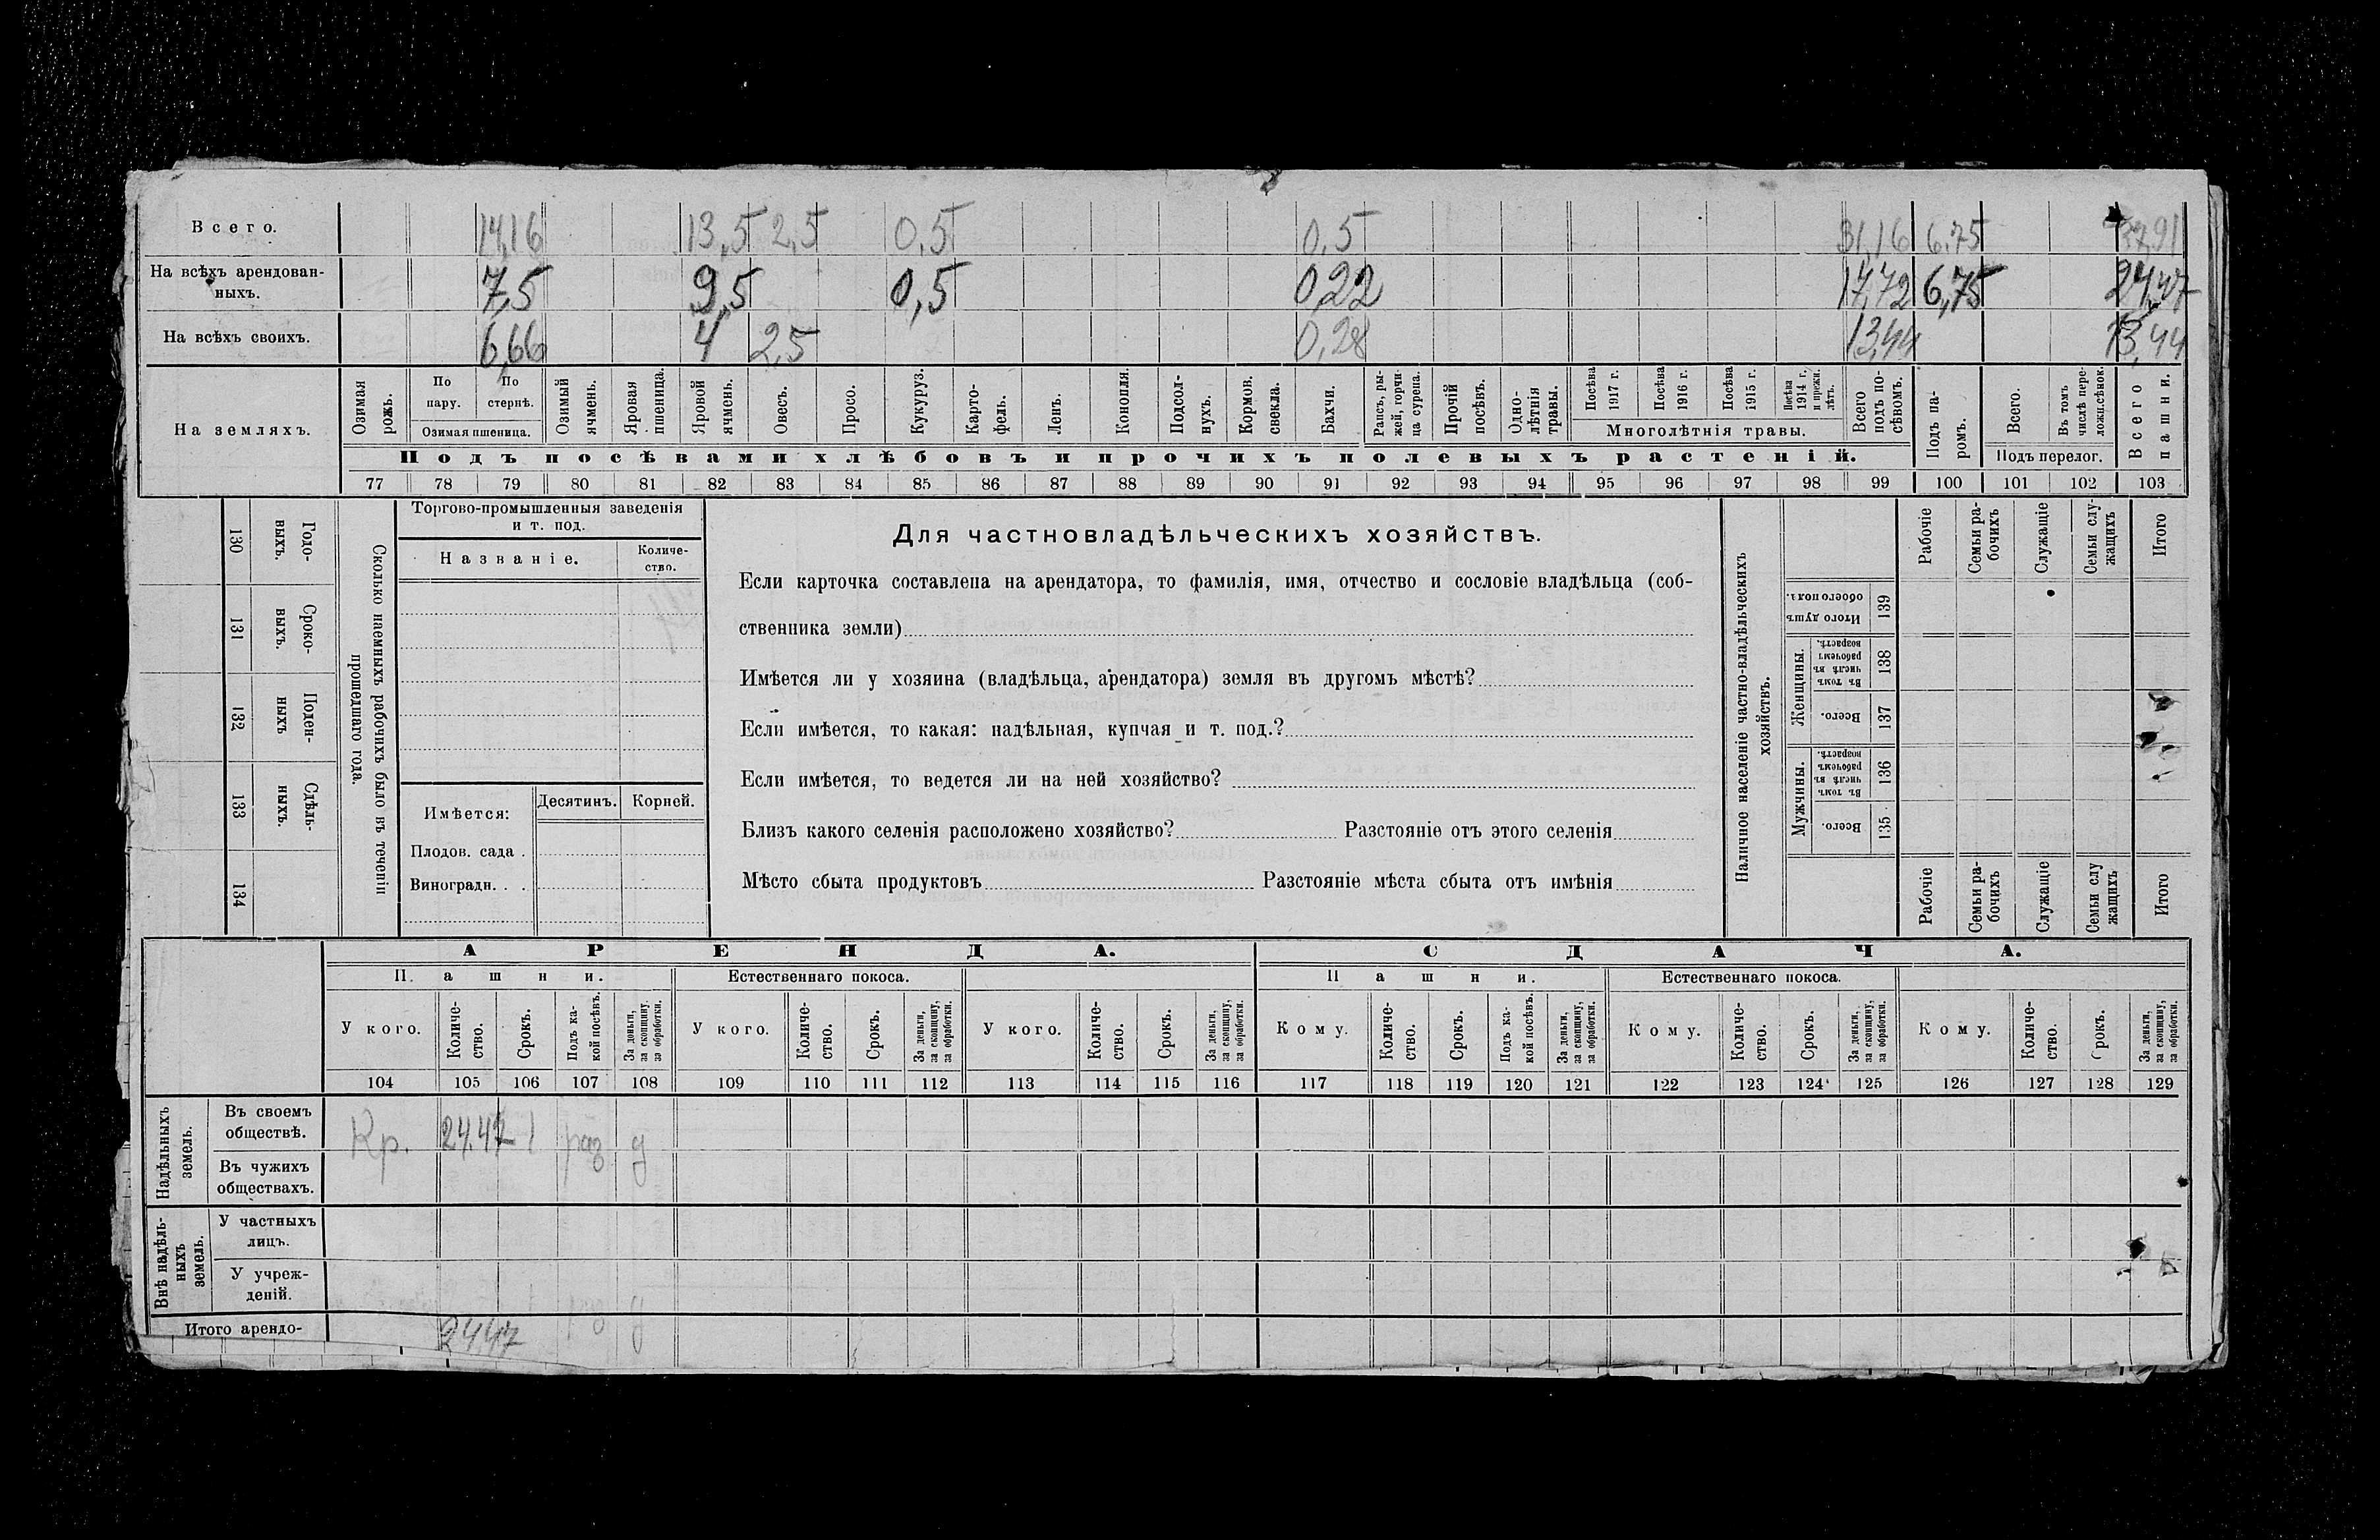 Всего. 14,16 13,5 2,5 0,5 0,5 31,16 6,75 37,91
На всѣхъ арендован-
ныхъ. 7,5 9,5 0,5 0,22 17,72 6,75 24,47
На всѣхъ своихъ. 6,66 4 2,5 0,28 13,44 13,44
На земляхъ.
Озимая рожь.
По пару.
По стернѣ.
Озимая пшеница.
Озимый ячмень.
Яровая пшеница.
Яровой ячмень.
Овесъ.
Просо.
Кукуруз.
Карто-
фель.
Ленъ.
Конопля.
Подсол-
нухъ.
Кормов. свекла.
Бахчи.
Рапсъ, ры-
жей, горчи-
ца сурепа.
Прочій посѣвъ.
Одно-
лѣтнія травы.
Посѣва 1917 г.
Посѣва 1916 г.
Посѣва 1915 г.
Посѣва 1914 г. и прежн. лѣтъ.
Многолѣтнія травы.
Всего подъ по-
сѣвомъ.
Подъ па-
ромъ.
Всего.
Въ томъ числѣ пере-
ложн.сѣнок.
Подъ перелог.
Всего пашни.
Подъ посѣвами хлѣбовъ и прочихъ полевыхъ растеній.
77 78 79 80 81 82 83 84 85 86 87 88 89 90 91 92 93 94 95 96 97 98 99 100 101 102 103
Сколько наемныхъ рабочихъ было въ теченіи
прошедшаго года.
Годо-
выхъ.
130
Сроко-
выхъ.
131
Поден-
ныхъ
132
Сдѣль-
ныхъ.
133
134
Торгово-промышленныя заведенія
и т. под.
Названіе.
Количе-
ство.
Имѣется:
Десятинъ.
Корней.
Плодов. сада .
Виноградн. . .
Для частновладѣльческихъ хозяйствъ.
Если карточка составлена на арендатора, то фамилія, имя, отчество и сословіе владѣльца (соб-
ственника земли)
Имѣется ли у хозяина (владѣльца, арендатора) земля въ другомъ мѣстѣ?
Если имѣется, то какая: надѣльная, купчая и т. под.?
Если имѣется, то ведется ли на ней хозяйство?
Близъ какого селенія расположено хозяйство? Разстояніе отъ этого селенія
Мѣсто сбыта продуктовъ Разстояніе мѣста сбыта отъ имѣнія
Наличное населеніе частно-владѣльческихъ
хозяйствъ.
Рабочіе
Семьи ра-
бочихъ
Служащіе
Семьи слу-
жащихъ
Итого
Итого душъ обоего пола.
139
Женщины.
Въ томъ числѣ въ рабочемъ возрастѣ.
138
Всего.
137
Мужчины.
Въ томъ числѣ въ рабочемъ возрастѣ.
136
Всего.
135
Рабочіе
Семьи ра-
бочихъ
Служащіе
Семьи слу
жащихъ
Итого
АРЕНДА. СДАЧА.
Пашни. Естественнаго покоса. Пашни. Естественнаго покоса.
У кого.
Количе-
ство.
Срокъ.
Подъ ка-
кой посѣвъ.
За деньги,
за скопщину,
за обработки.
У кого.
Количе-
ство.
Срокъ.
За деньги,
за скопщину,
за обработки.
У кого.
Количе-
ство.
Срокъ.
За деньги,
за скопщину,
за обработки.
Кому.
Количе-
ство.
Срокъ.
Подъ ка-
кой посѣвъ.
За деньги,
за скопщину,
за обработки.
Кому.
Количе-
ство.
Срокъ.
За деньги,
за скопщину,
за обработки.
Кому.
Количе-
ство.
Срокъ.
За деньги,
за скопщину,
за обработки.
104 105 106 107 108 109 110 111 112 113 114 115 116 117 118 119 120 121 122 123 124 125 126 127 128 129
Надѣльныхъ
земель.
Въ своемъ
обществѣ. Кр. 24,47 1 раз д
Въ чужихъ
обществахъ.
Внѣ надѣль-
ныхъ
земель.
У частныхъ
лицъ.
У учреж-
деній.
Итого арендо- 24,47